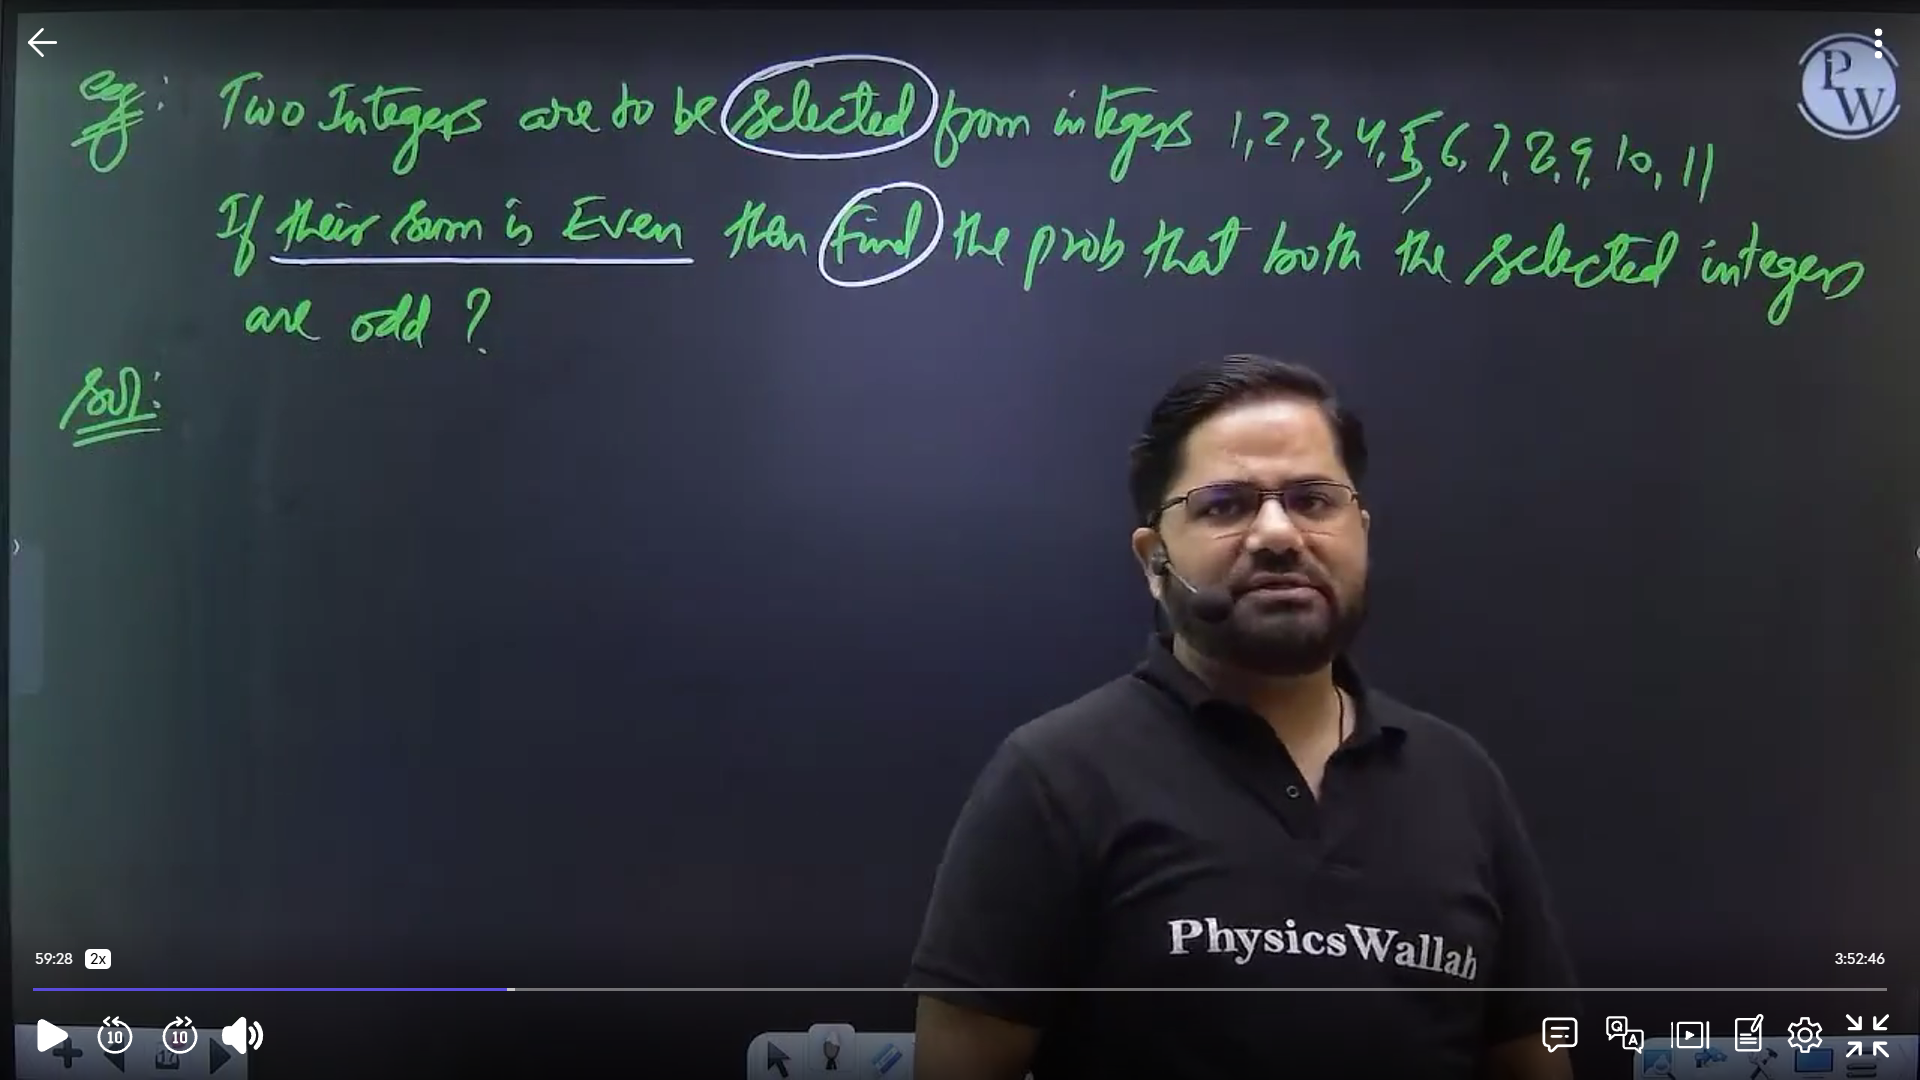 eg: Two Integers are to be selected from integers 1,2,3,4,5,6,7,8,9,10,11
If their sum is Even then find the prob that both the selected integers
are odd ?
Sol:
PW
PhysicsWallah
59:28 2x
3:52:46
10 10
17